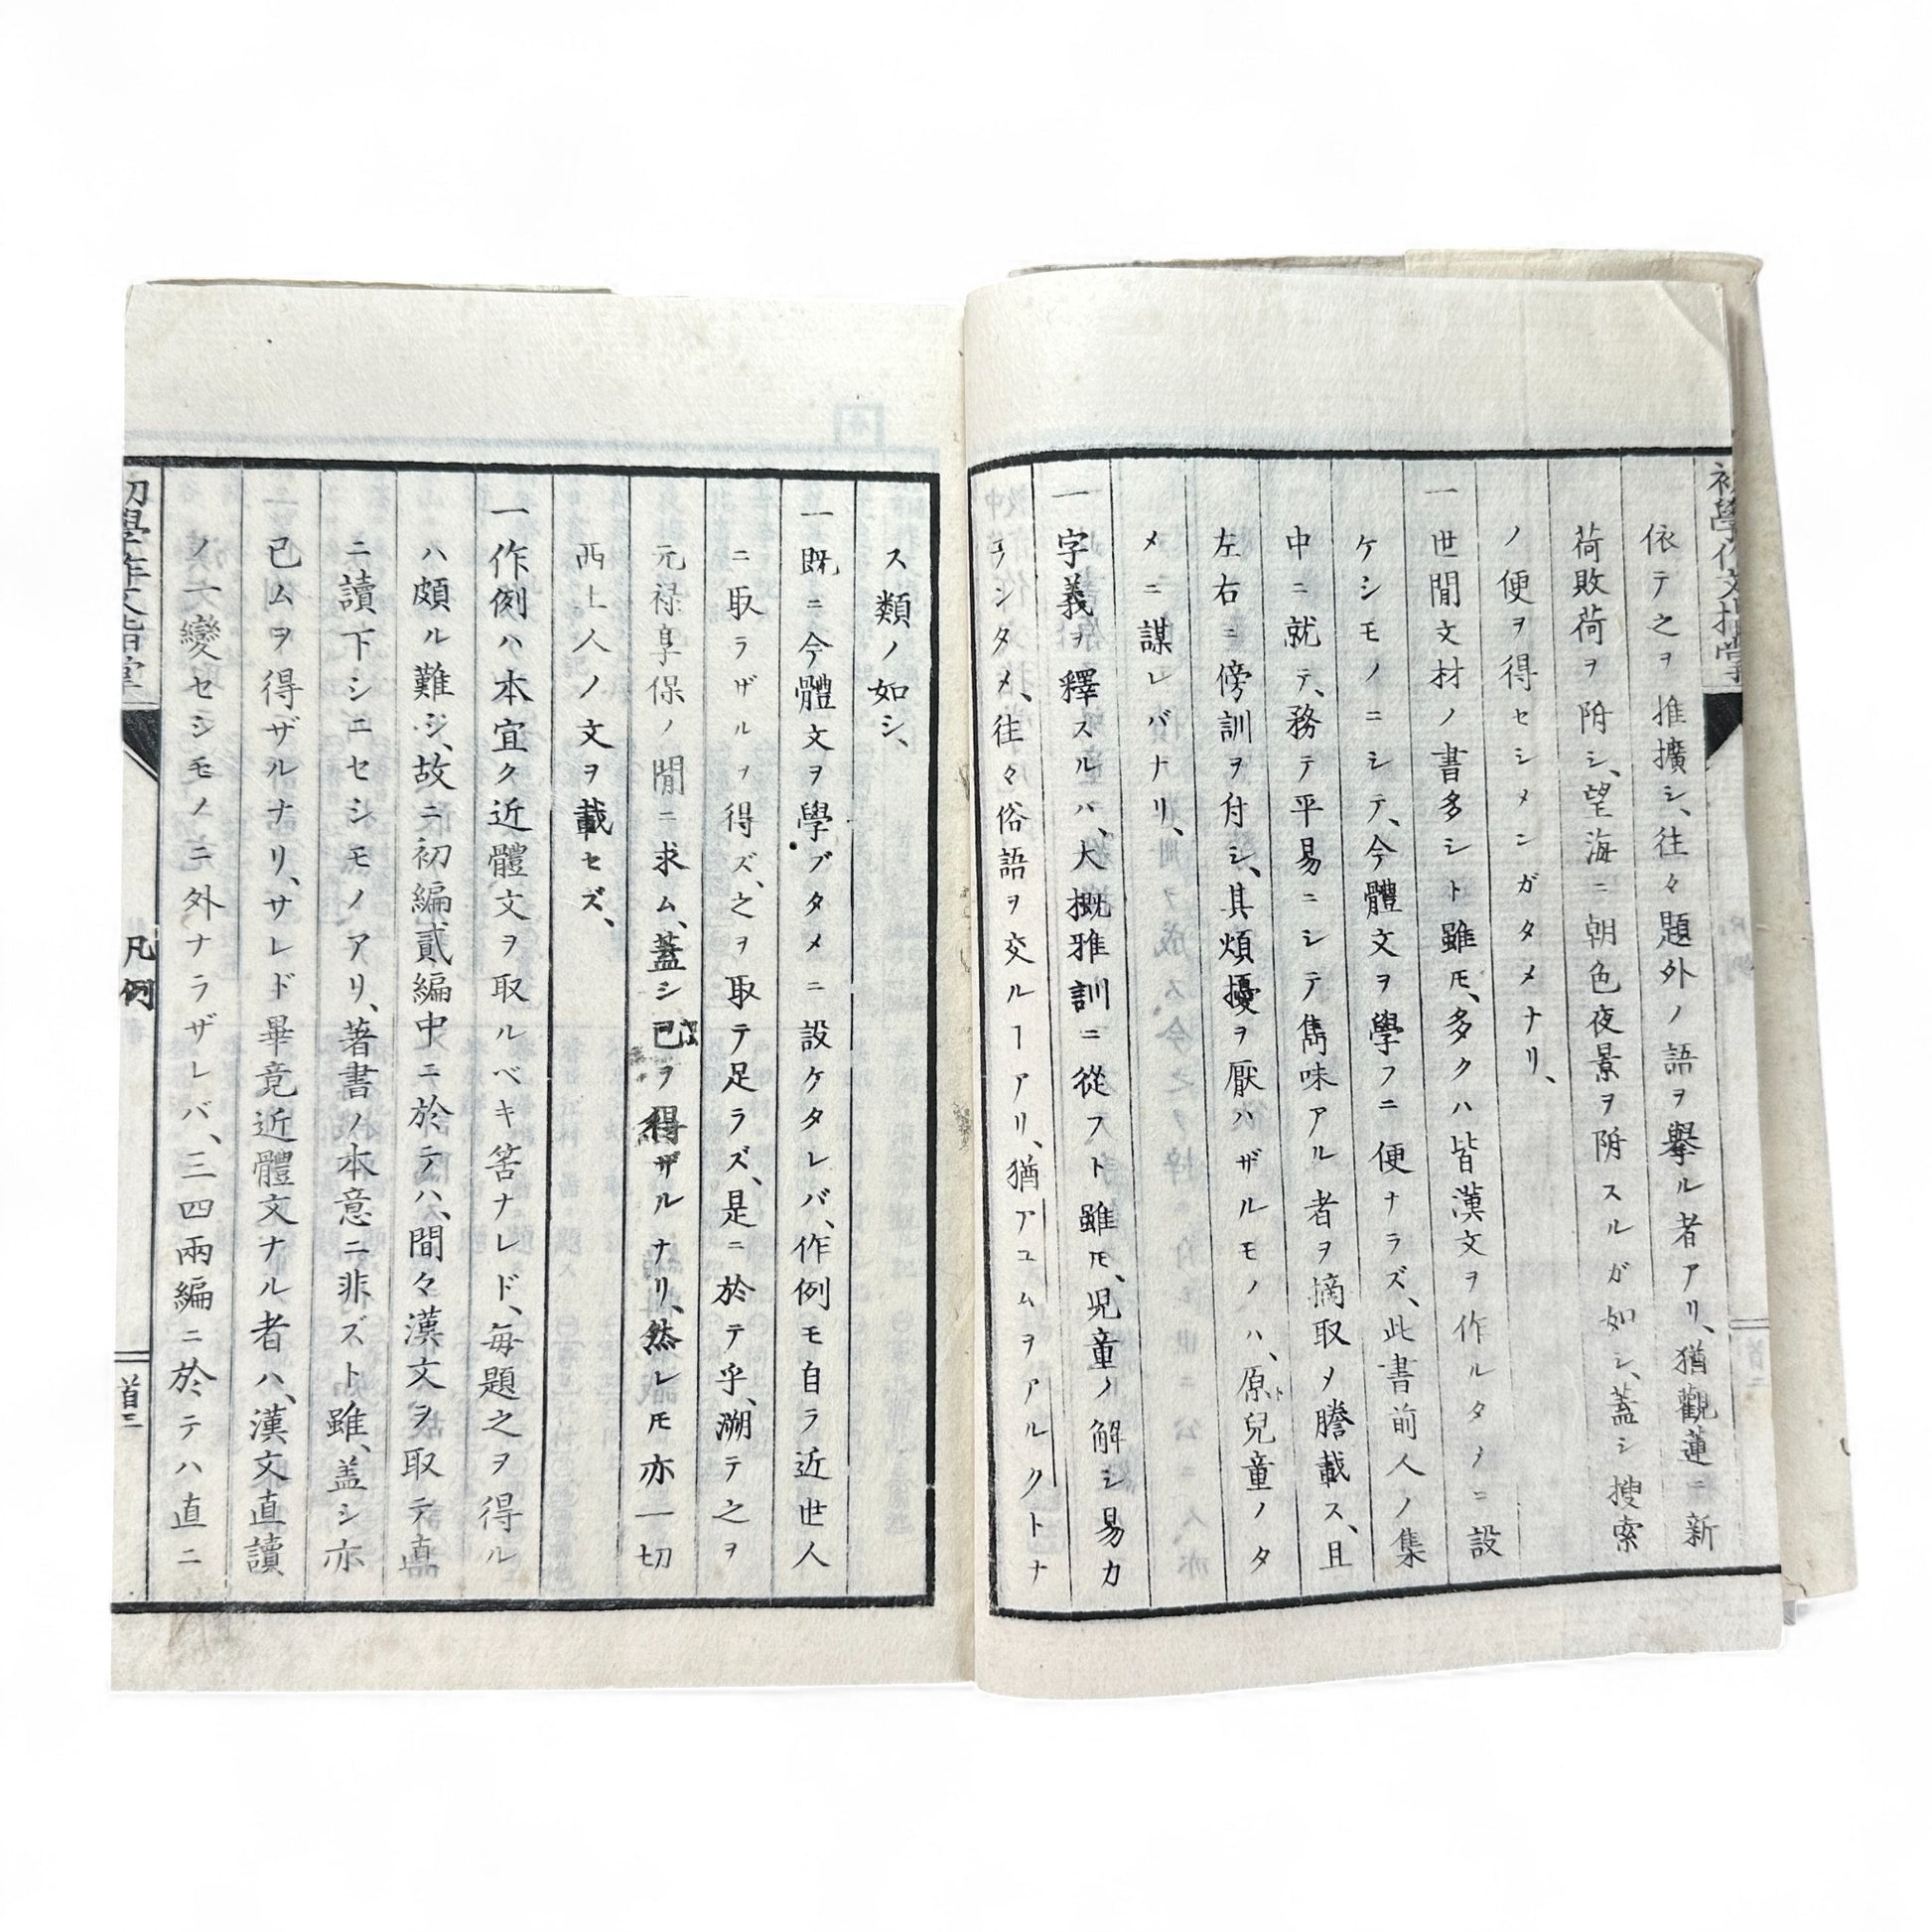 依テ之ヲ推擴シ、往々題外ノ語ヲ擧ル者アリ、猶觀蓮ニ新
荷敗荷ヲ附シ、望海ニ朝色夜景ヲ附スルガ如シ、蓋シ搜索
ノ便ヲ得セシメンガタメナリ、
一世間文材ノ書多シト雖𪜈、多クハ皆漢文ヲ作ルタメニ設
ケシモノニシテ、今體文ヲ學フニ便ナラズ、此書前人ノ集
中ニ就テ、務テ平易ニシテ雋味アル者ヲ摘取メ謄載ス、且
左右ニ傍訓ヲ付シ、其煩擾ヲ厭ハザルモノハ、原ト兒童ノタ
メニ謀レバナリ、
一字義ヲ釋スルハ、大概雅訓ニ從フト雖𪜈、児童ノ解シ易カ
ランタメ、往々俗語ヲ交ルヿアリ、猶アユムヲアルクトナ
ス類ノ如シ、
一既ニ今體文ヲ學ブタメニ設ケタレバ、作例モ自ラ近世人
ニ取ラザルヲ得ズ、之ヲ取テ足ラズ、是ニ於テ乎、溯テ之ヲ
元禄享保ノ間ニ求ム、蓋シ已ヲ得ザルナリ、然レ𪜈亦一切
西土人ノ文ヲ載セズ、
一作例ハ本宜ク近體文ヲ取ルベキ筈ナレド、毎題之ヲ得ル
ハ頗ル難ジ、故ニ初編貳編中ニ於テハ、間々漢文ヲ取テ直
ニ讀下シニセシモノアリ、著書ノ本意ニ非ズト雖、盖シ亦
已ムヲ得ザルナリ、サレド畢竟近體文ナル者ハ、漢文直讀
ノ一變セシモノニ外ナラザレバ、三四兩編ニ於テハ直ニ
凡例
首三